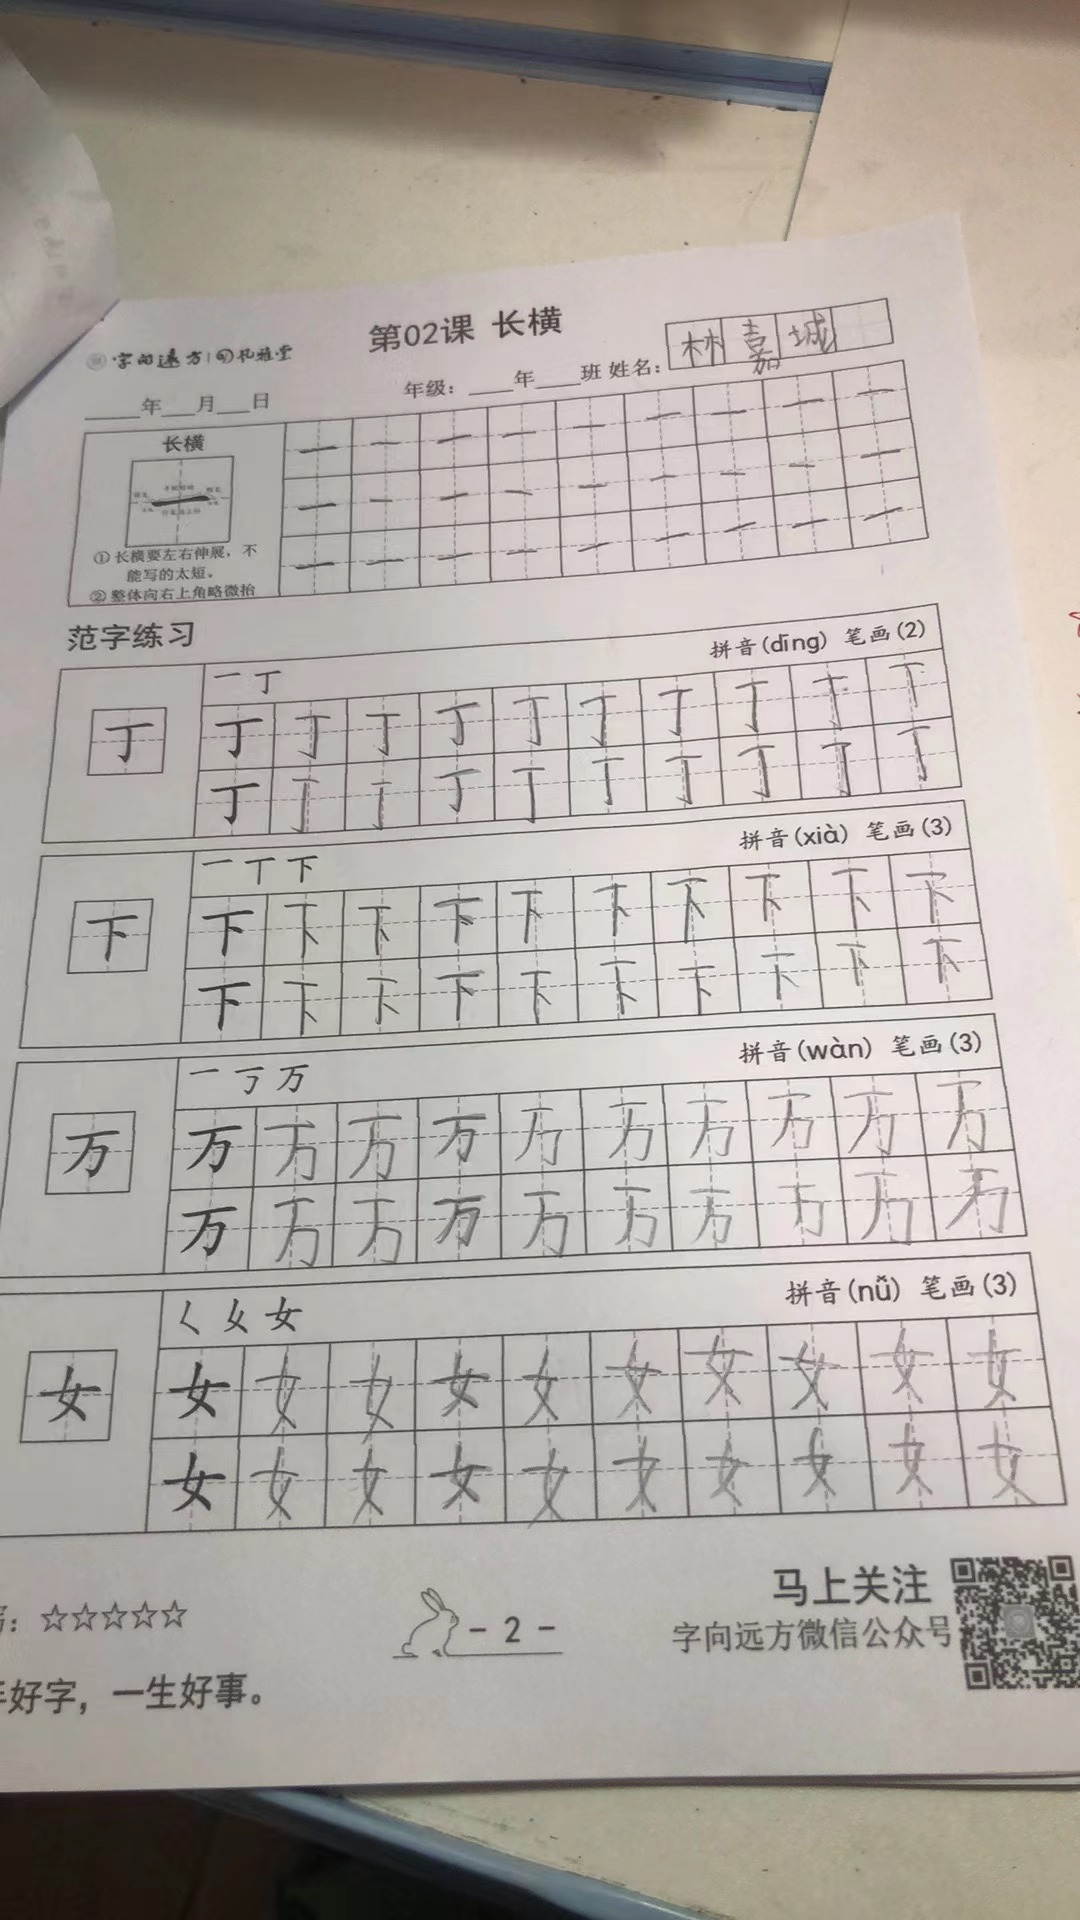 第02课 长横
林嘉城
____年___月___日 年级：____年____班 姓名：
长横
① 长横要左右伸展，不
能写的太短。
② 整体向右上角略微抬
一 一 一 一 一 一 一 一 一
一 一 一 一 一 一 一 一 一
一 一 一 一 一 一 一 一 一
范字练习
拼音(dīng) 笔画(2)
一 丁
丁
丁 丁 丁 丁 丁 丁 丁 丁 丁 丁
丁 丁 丁 丁 丁 丁 丁 丁 丁 丁
拼音(xià) 笔画(3)
一 丅 下
下
下 下 下 下 下 下 下 下 下 下
下 下 下 下 下 下 下 下 下 下
拼音(wàn) 笔画(3)
一 丂 万
万
万 万 万 万 万 万 万 万 万 万
万 万 万 万 万 万 万 万 万 万
拼音(nǚ) 笔画(3)
女
女
女 女 女 女 女 女 女 女 女 女
女 女 女 女 女 女 女 女 女 女
：☆☆☆☆☆
- 2 -
马上关注
字向远方微信公众号
好字，一生好事。